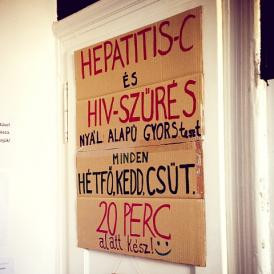 HEPATITIS-C
ÉS
HIV-SZŰRÉS
NYÁL ALAPÚ GYORSteszt
MINDEN
HÉTFŐ, KEDD, CSÜT.
20 PERC
alatt kész!